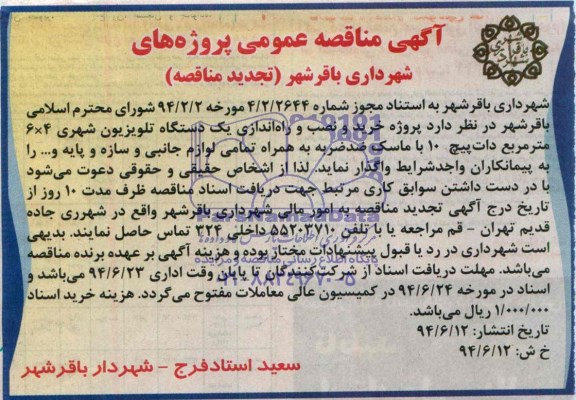 آگهی مناقصه عمومی پروژه‌های
شهرداری باقرشهر (تجدید مناقصه)
شهرداری باقرشهر به استناد مجوز شماره ۴/۲/۲۶۴۴ مورخه ۹۴/۲/۲ شورای محترم اسلامی
باقرشهر در نظر دارد پروژه خرید و نصب و راه‌اندازی یک دستگاه تلویزیون شهری ۴×۶
مترمربع دات‌پیچ ۱۰ با ماسک ضدضربه به همراه تمامی لوازم جانبی و سازه و پایه و... را
به پیمانکاران واجدشرایط واگذار نماید. لذا از اشخاص حقیقی و حقوقی دعوت می‌شود
با در دست داشتن سوابق کاری مرتبط جهت دریافت اسناد مناقصه ظرف مدت ۱۰ روز از
تاریخ درج آگهی تجدید مناقصه به امور مالی شهرداری باقرشهر واقع در شهرری جاده
قدیم تهران - قم مراجعه یا با تلفن ۵۵۲۰۳۷۱۰ داخلی ۳۲۴ تماس حاصل نمایند. بدیهی
است شهرداری در رد یا قبول پیشنهادات مختار بوده و هزینه آگهی بر عهده برنده مناقصه
می‌باشد. مهلت دریافت اسناد از شرکت‌کنندگان تا پایان وقت اداری ۹۴/۶/۲۳ می‌باشد و
اسناد در مورخه ۹۴/۶/۲۴ در کمیسیون عالی معاملات مفتوح می‌گردد. هزینه خرید اسناد
۱/۰۰۰/۰۰۰ ریال می‌باشد.
تاریخ انتشار: ۹۴/۶/۱۲
خ ش: ۹۴/۶/۱۲
سعید استادفرج - شهردار باقرشهر